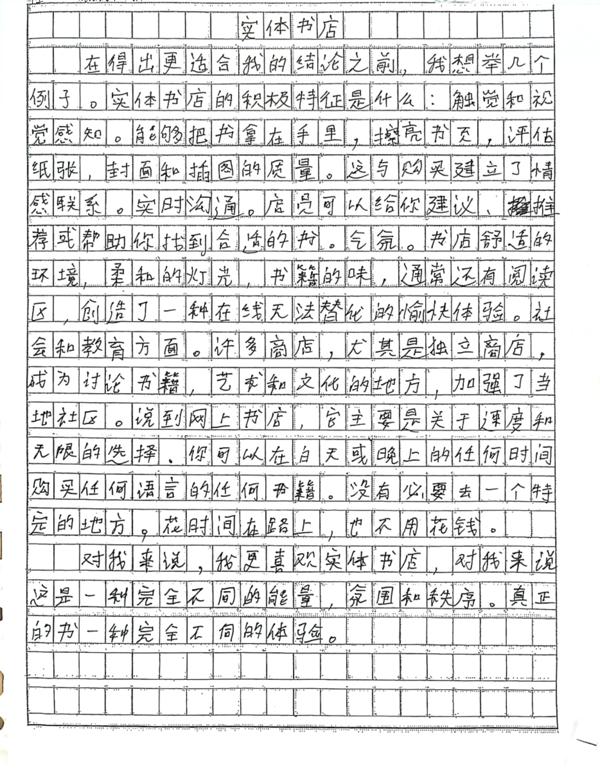 实体书店
在得出更适合我的结论之前，我想举几个
例子。实体书店的积极特征是什么：触觉和视
觉感知。能够把书拿在手里，擦亮书页，评估
纸张，封面和插图的质量。这与购买建立了情
感联系。实时沟通。店员可以给你建议、推
荐或帮助你找到合适的书。气氛。书店舒适的
环境，柔和的灯光，书籍的味，通常还有阅读
区，创造了一种在线无法替代的愉快体验。社
会和教育方面。许多商店，尤其是独立商店，
成为讨论书籍，艺术和文化的地方，加强了当
地社区。说到网上书店，它主要是关于速度和
无限的选择．你可以在白天或晚上的任何时间
购买任何语言的任何书籍。没有必要去一个特
定的地方，花时间在路上，也不用花钱。
对我来说，我更喜欢实体书店，对我来说
这是一种完全不同的能量，氛围和秩序。真正
的书一种完全不同的体验。